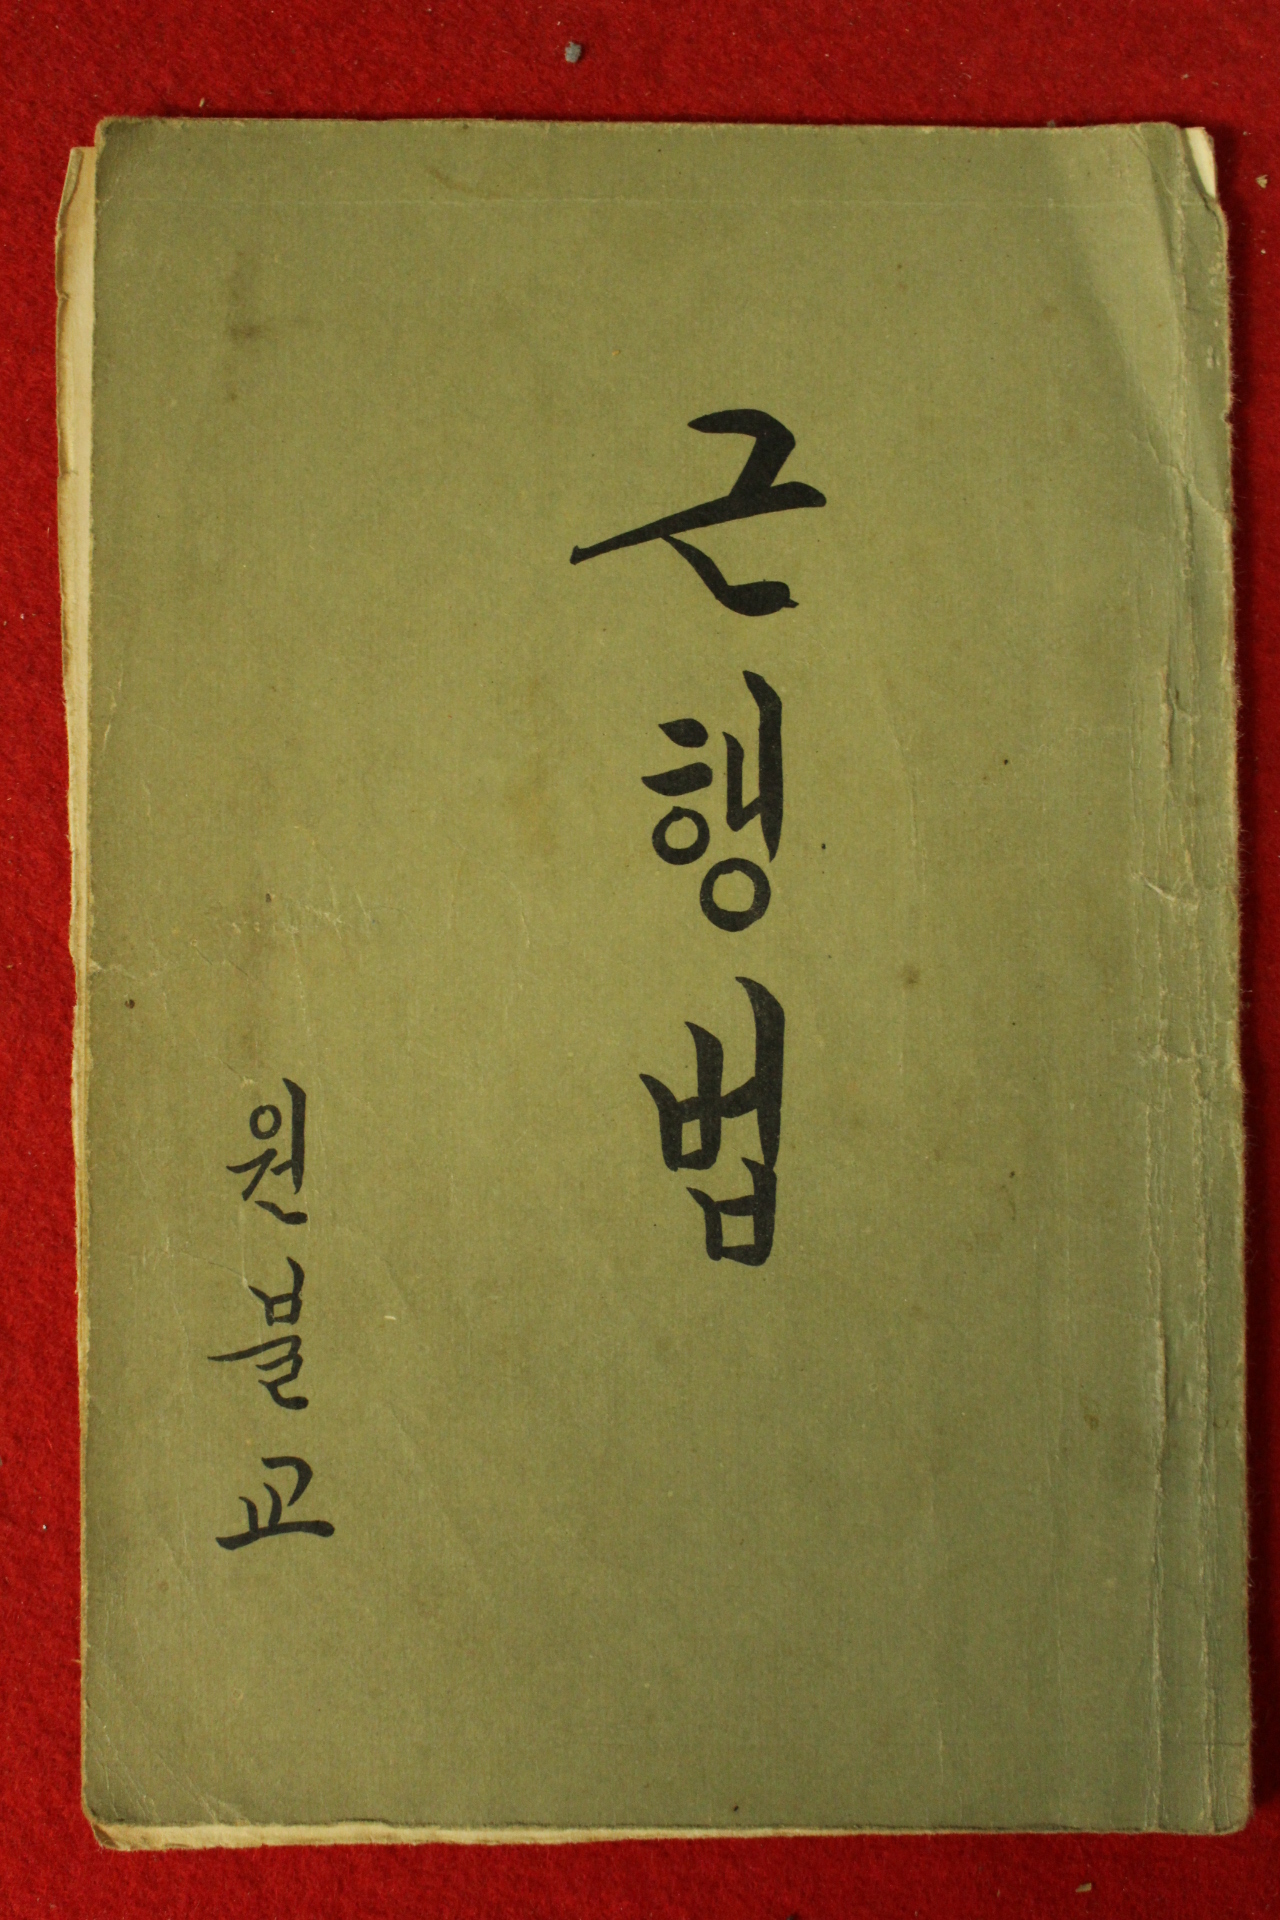 근행법
원불교